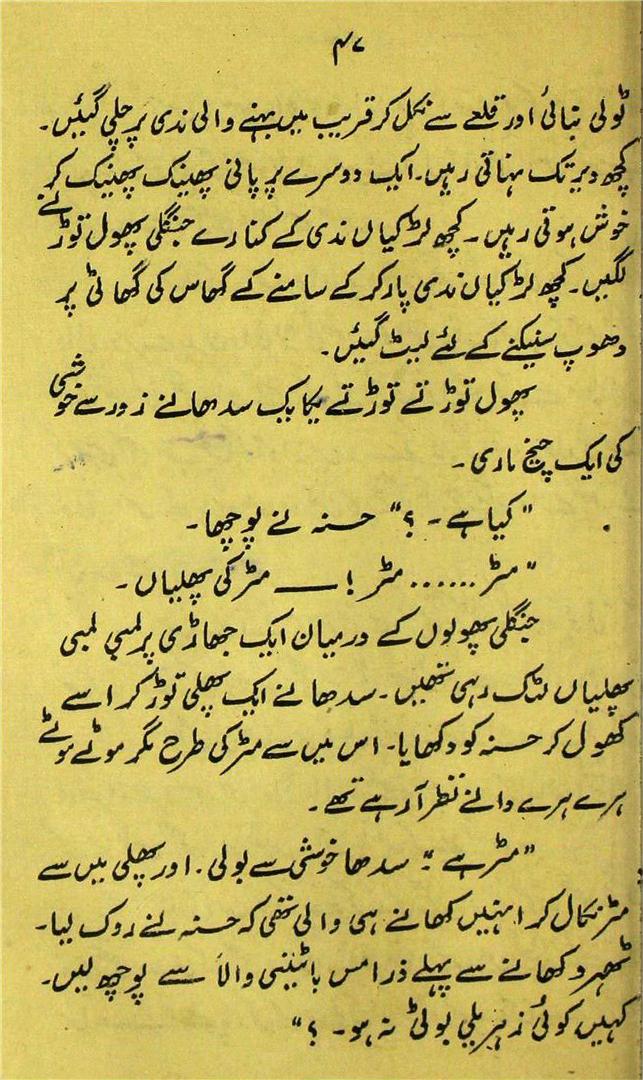 ۴۷
ٹولی بنائی اور قلعے سے نکل کر قریب میں بہنے والی ندی پر چلی گیئں۔
کچھ دیر تک نہاتی رہیں۔ ایک دوسرے پر پانی پھینک پھینک کر
خوش ہوتی رہیں۔ کچھ لڑکیاں ندی کے کنارے جنگلی پھول توڑنے
لگیں۔ کچھ لڑکیاں ندی پار کر کے سامنے کے گھاس کی گھاٹی پر
دھوپ سینکنے کے لئے لیٹ گیئں۔
پھول توڑتے توڑتے یکایک سدھا نے زور سے خوشی
کی ایک چیخ ماری۔
"کیا ہے۔ ؟" حسنہ نے پوچھا۔
"مٹر ...... مٹر ! ــــ مٹر کی پھلیاں۔
جنگلی پھولوں کے درمیان ایک جھاڑی پر لمبی لمبی
پھلیاں لٹک رہی تھیں۔ سدھا نے ایک پھلی توڑ کر اسے
کھول کر حسنہ کو دکھایا۔ اس میں سے مٹر کی طرح مگر موٹے موٹے
ہرے ہرے دانے نظر آ رہے تھے۔
"مٹر ہے"۔ سدھا خوشی سے بولی۔ اور پھلی میں سے
مٹر نکال کر انہیں کھانے ہی والی تھی کہ حسنہ نے روک لیا۔
ٹھہرو کھانے سے پہلے ذرا مس باٹینی والا سے پوچھ لیں۔
کہیں کوئی زہریلی بوٹی نہ ہو۔ ؟"